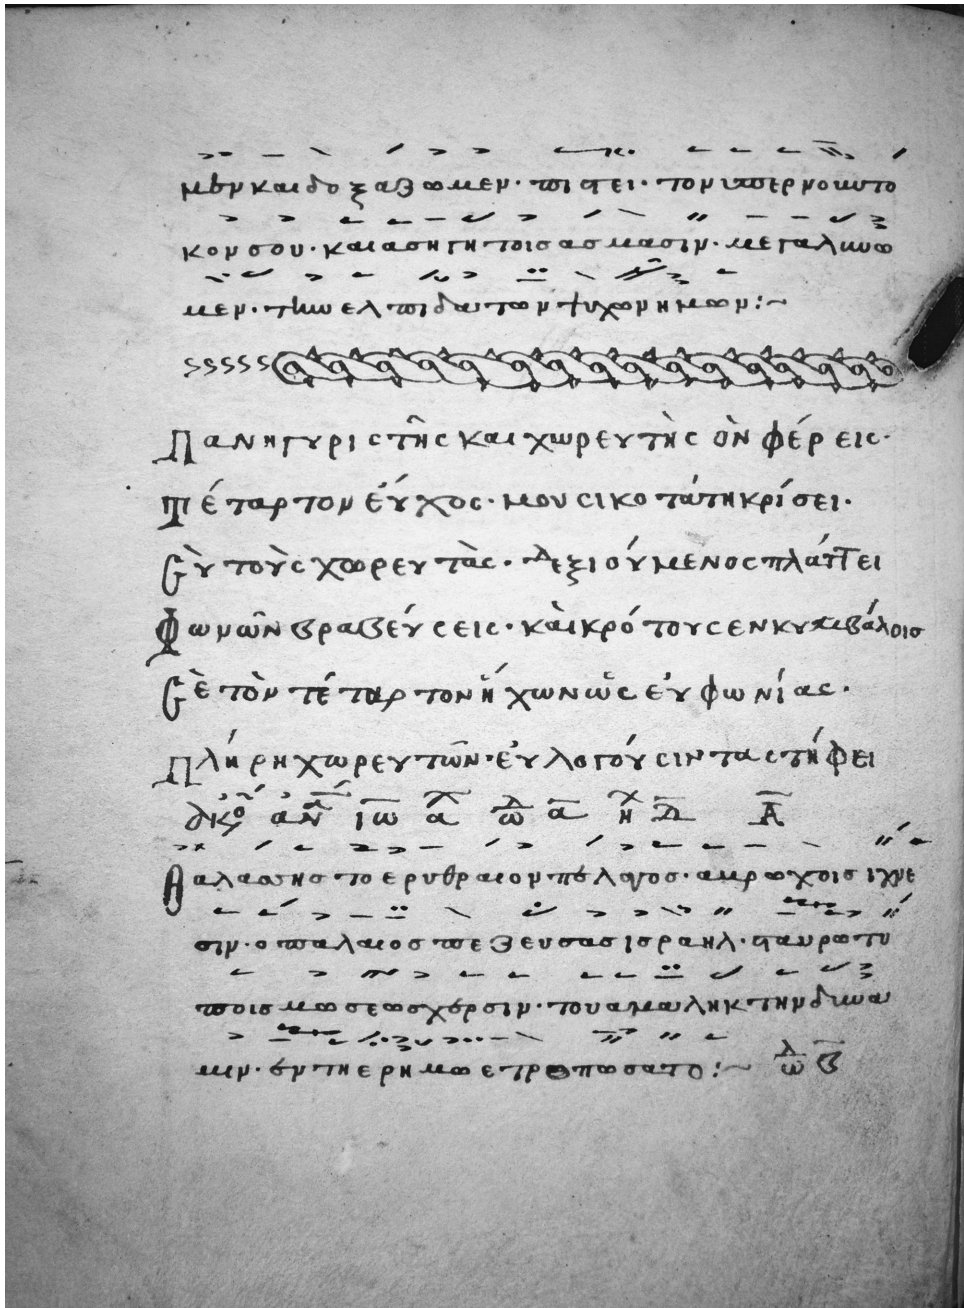 μεν και δοξαζωμεν· πιστει· τον υπερ νουν το
κον σου· και ασιγητοις ασμασιν· μεγαλυνω
μεν· την ελπιδα των ψυχων ημων:~
Πανηγυριστῆς και χωρευτὴς ὸν φέρεις·
Τέταρτον έύχος· μουσικοτάτη κρίσει·
Σὺ τοὺς χωρευτὰς· ἀξιούμενος πλάττει
Φωνῶν βραβέυσεις· κὰι κρότους εν κυμβάλοις
Σὲ τὸν τέταρτον ἤχων ὡς ἐυφωνίας·
Πλήρη χωρευτῶν· ἐυλογούσιν τα στήφει
Θαλασσης το ερυθραιον πελαγος· αβροχοις ιχνε
σιν· ο παλαιος πεζευσας ισραηλ· σταυροτυ
ποις μωσεως χερσιν· του αμαληκ την δυνα
μιν· εν τη ερημω ετροπωσατο:~